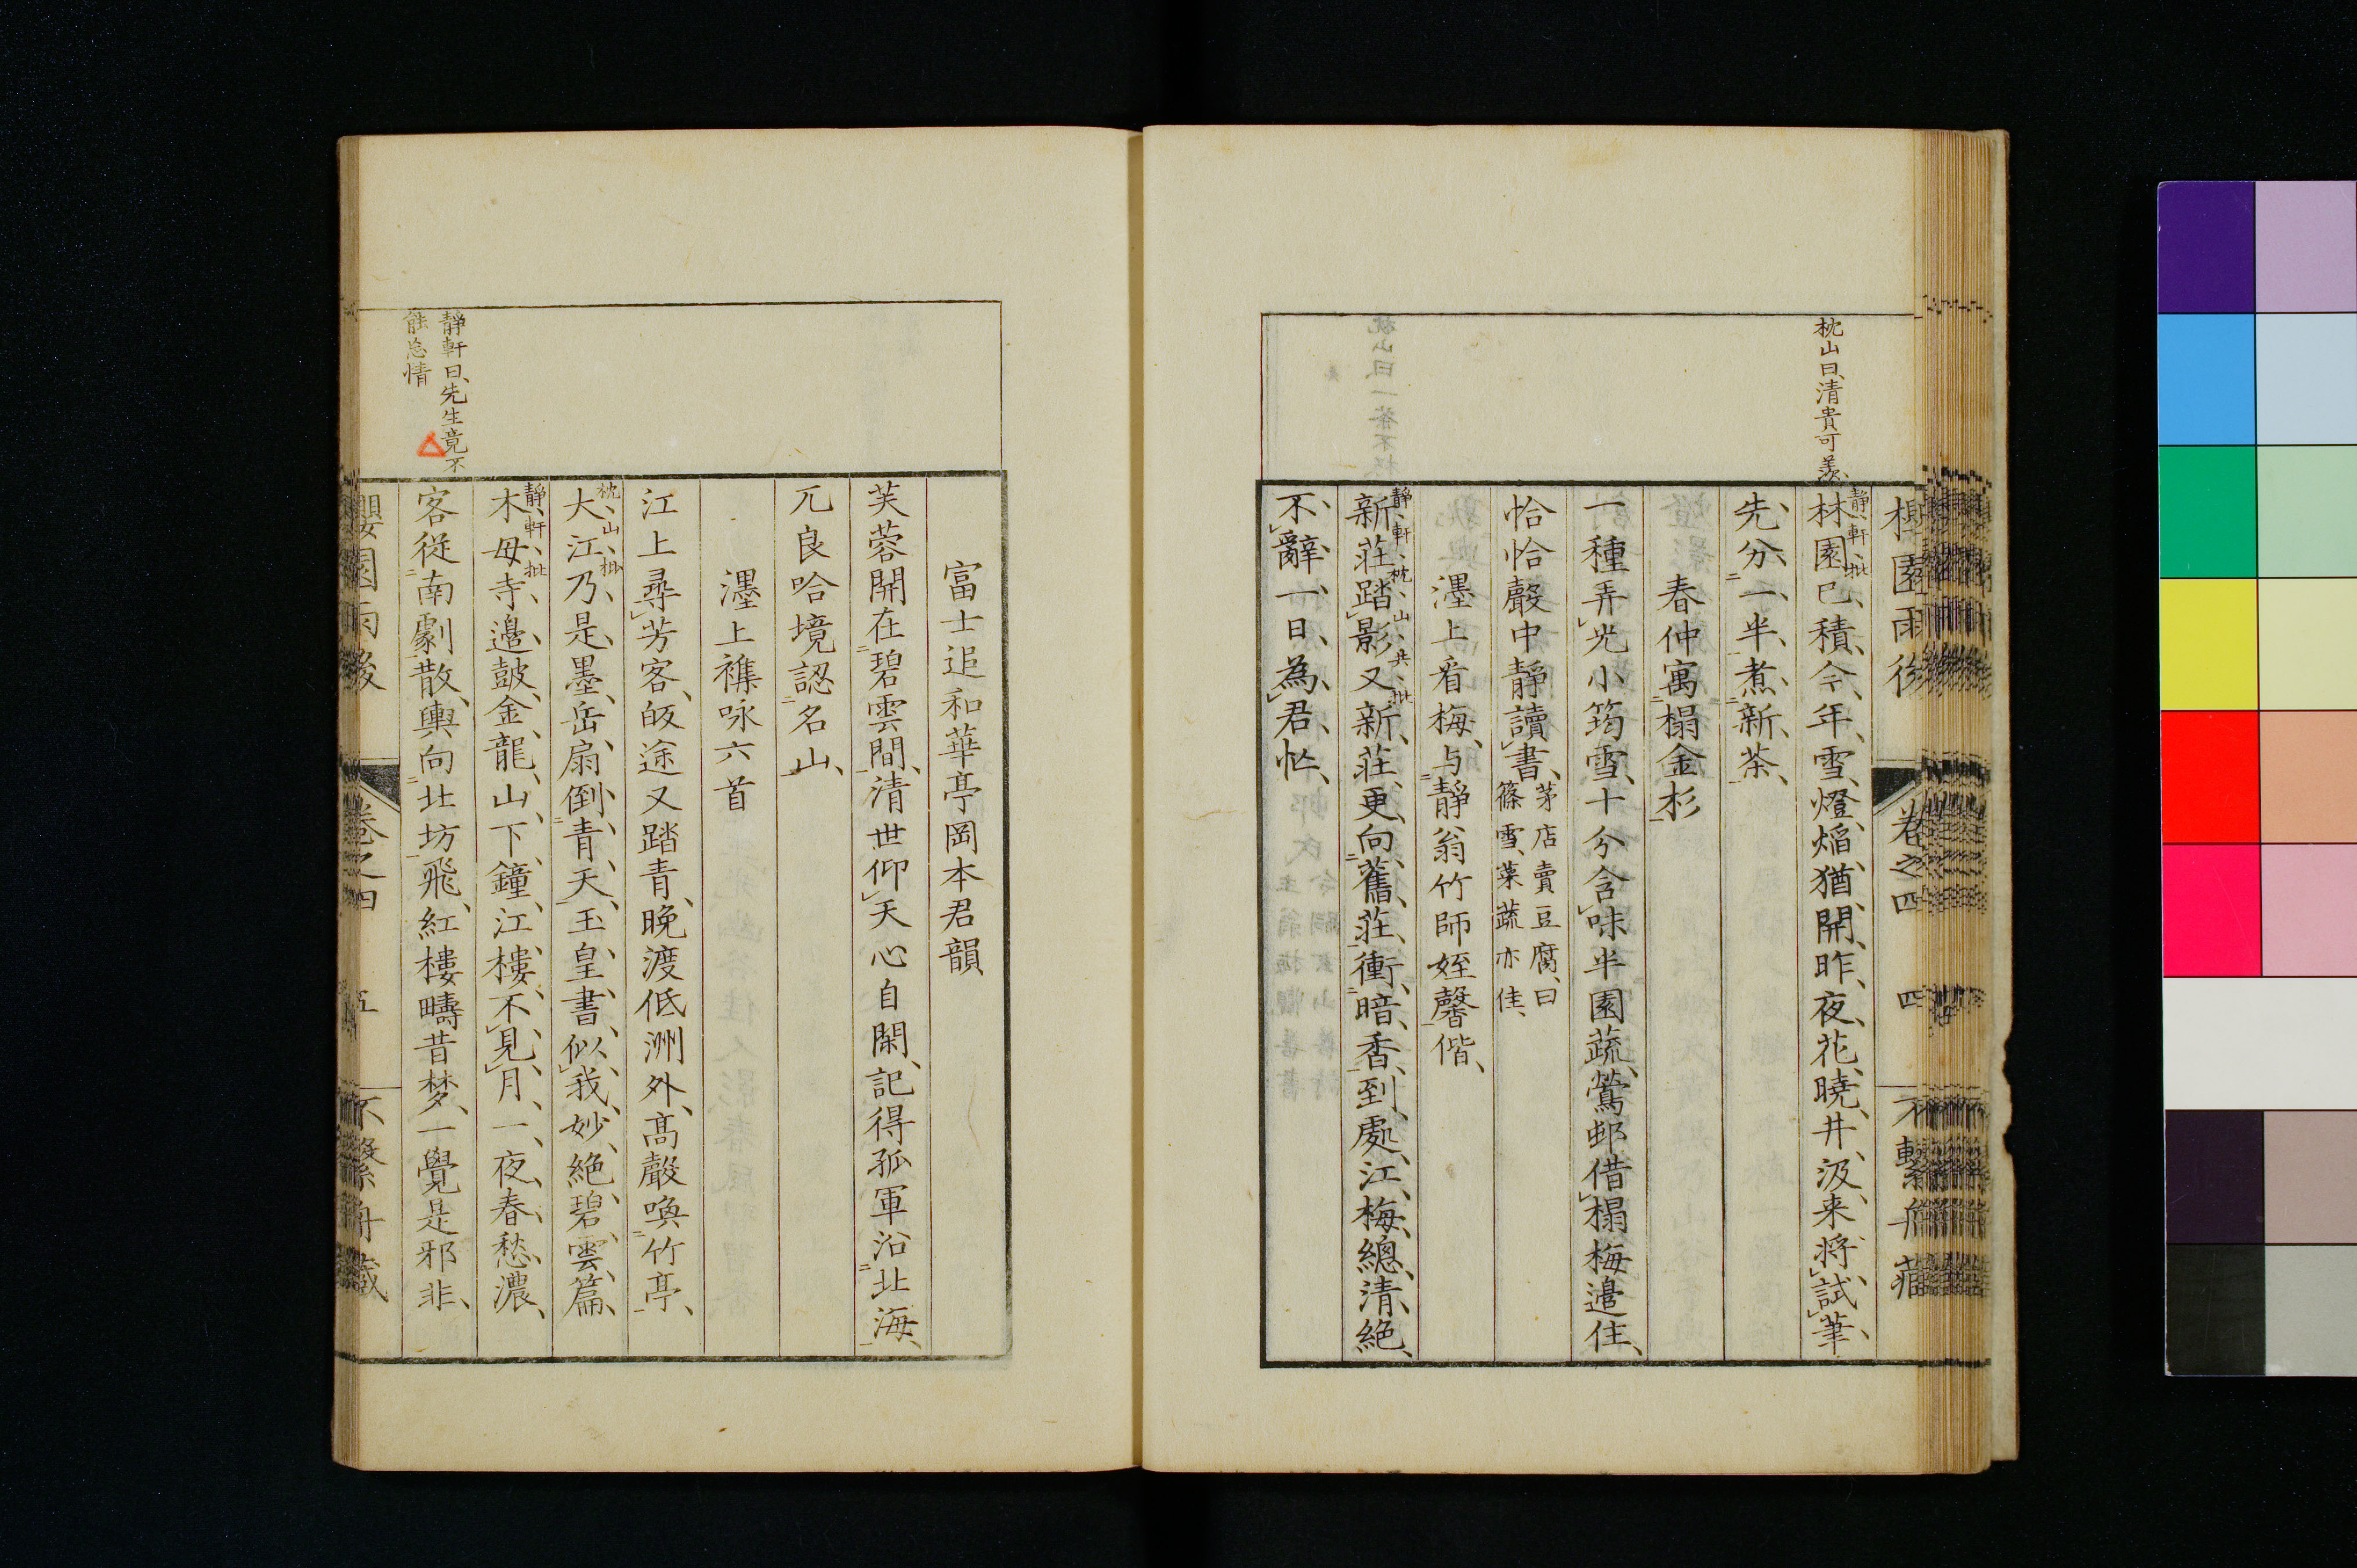 枕山曰清貴可羨
靜軒批
林園已積今年雪燈焰猶開昨夜花曉井汲来将試筆
先分一半煮新茶
春仲寓榻金杉
一種弄光小筠雪十分含味半園蔬鶯邨借榻梅邉住
恰恰聲中靜讀書
茅店賣豆腐曰
篠雪菜蔬亦佳
濹上看梅与靜翁竹師姪馨偕
靜軒枕山共批
新荘踏影又新荘更向舊荘衝暗香到處江梅總清絶
不辭一日為君忙
卷之四 四
富士追和華亭岡本君韻
芙蓉開在碧雲間清世仰天心自閑記得孤軍沿北海
兀良哈境認名山
濹上襍咏六首
江上尋芳客皈途又踏青晚渡低洲外高聲喚竹亭
枕山批
大江乃是墨岳扇倒青天玉皇書似我妙絶碧雲篇
靜軒批
木母寺邉皷金龍山下鐘江樓不見月一夜春愁濃
靜軒曰先生竟不
能忘情
客従南劇散輿向北坊飛紅樓疇昔梦一覺是邪非
櫻園雨後 卷之四 五 不繫舟藏